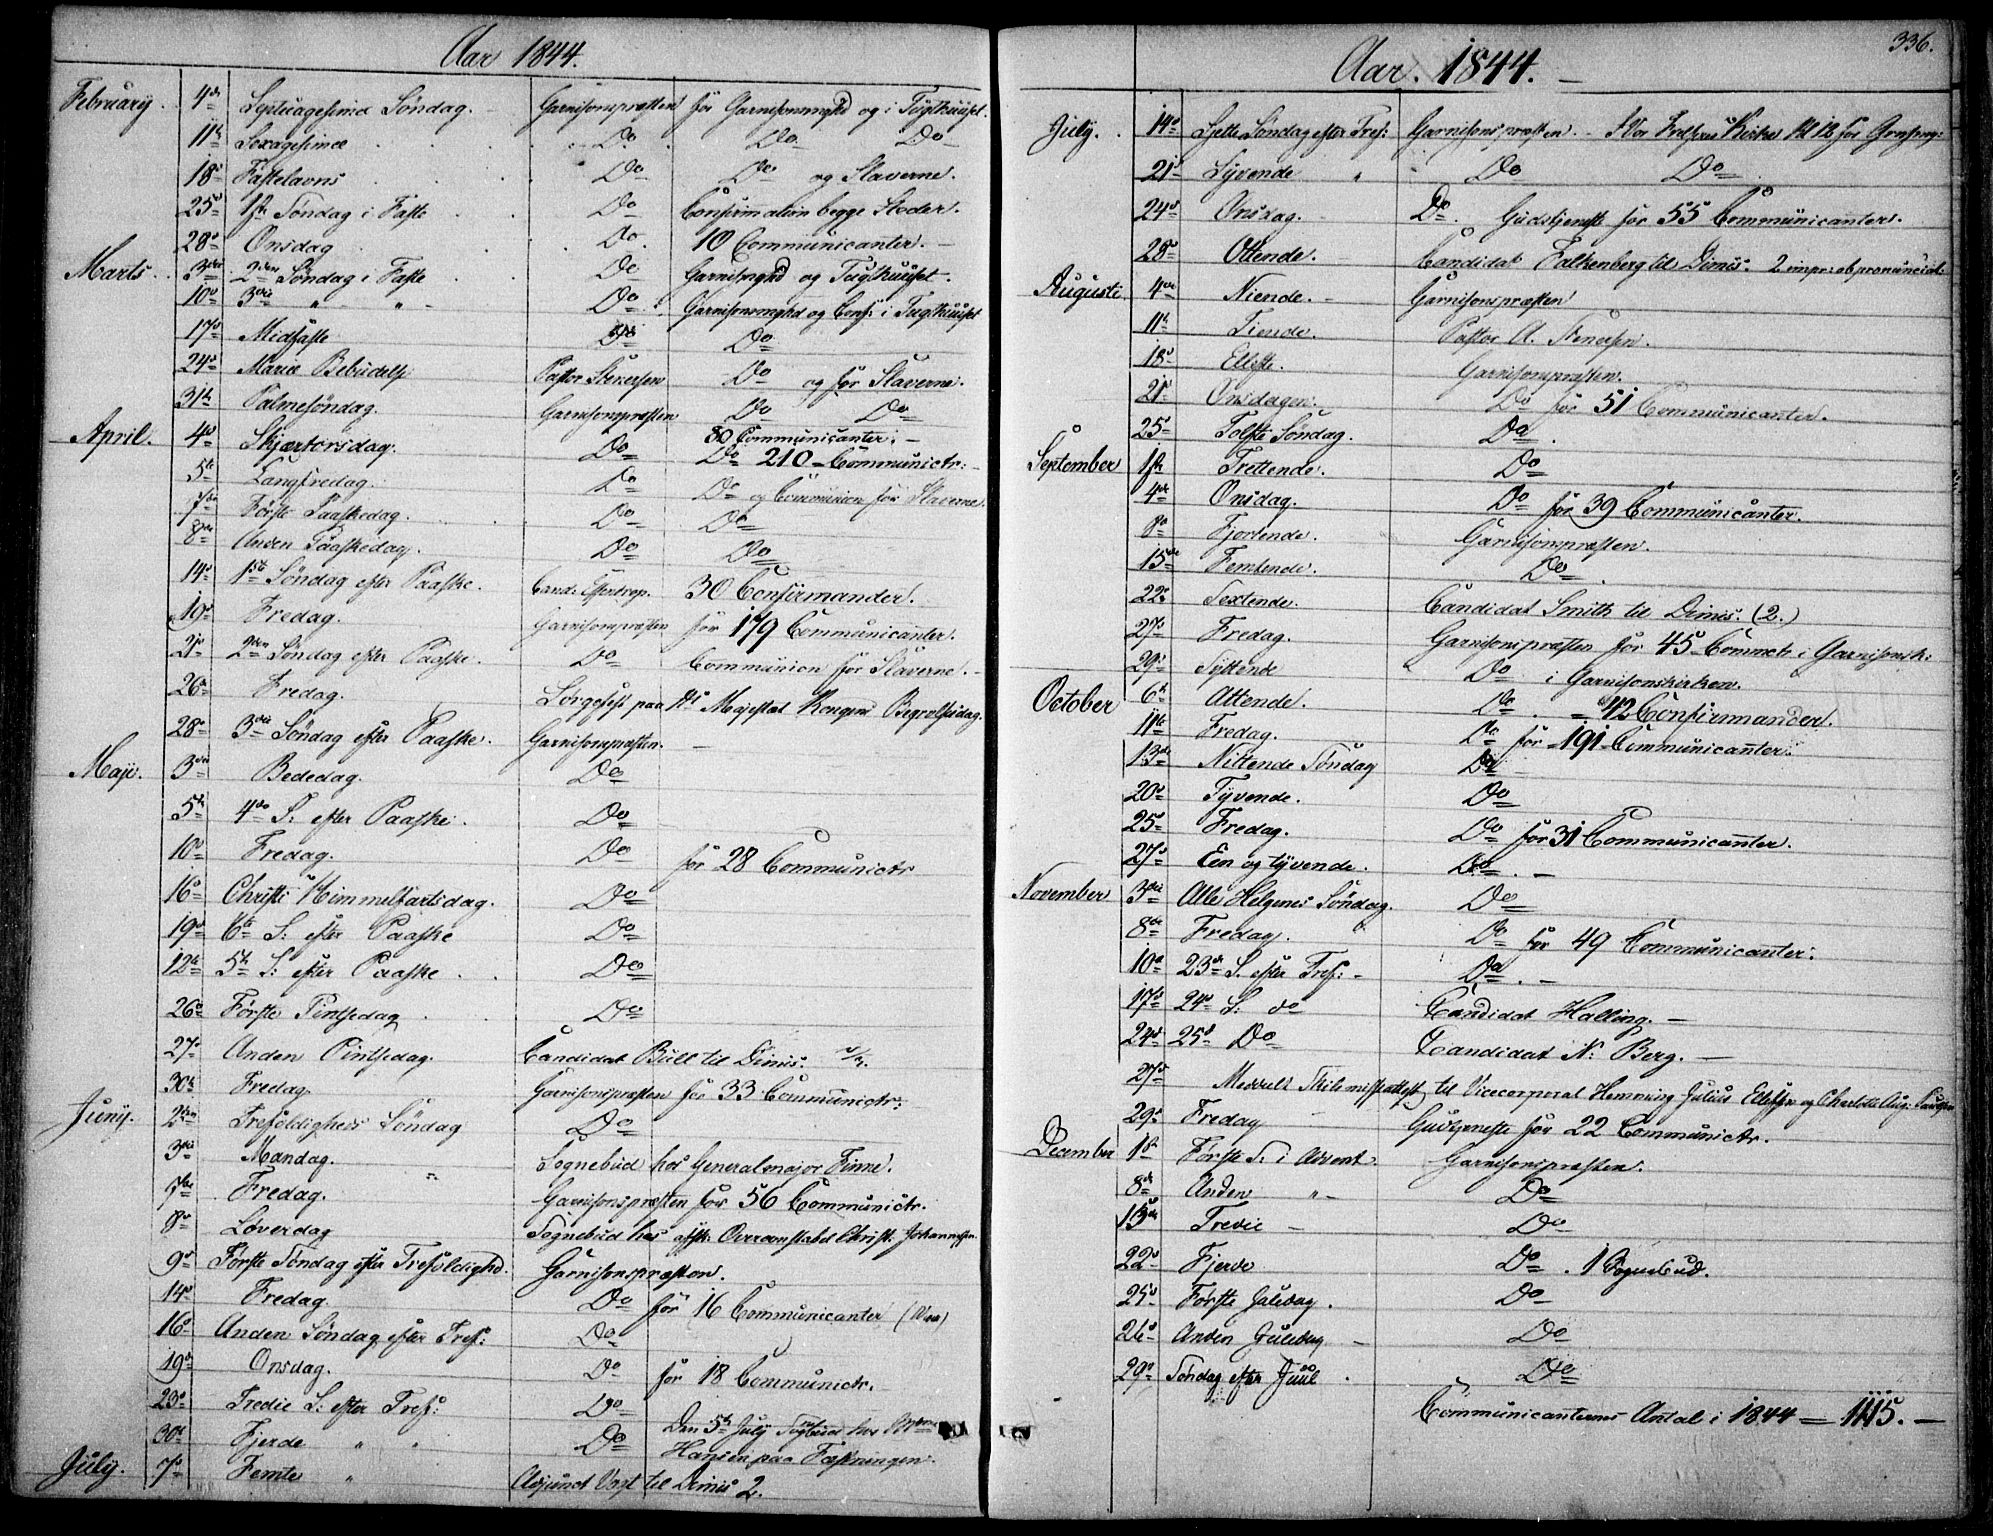 Aar 1844.
February. 4de Septuagesima Søndag. Garnisonspræsten for Garnisonmghd og i Tugthuuset.
11te Sexagesima Do Do Do
18de Fastelavns Do Do og Slaverne.
25de 1ste Søndag i Faste Do Confirmation begge Steder.
28de Onsdag Do 10 Communicanter.
Marts. 3die 2den Søndag i Faste Do Garnismghd og Tugthuuset.
10de 3die " " Do Garnisonsmghd og Conf: i Tugthuuset
17de Midfaste Do Do
24de Mariæ Bebudelse Pastor Stenersen Do og for Slaverne.
31te Palmesøndag. Garnisonspræsten Do Do
April. 4de Skjærtorsdag. Do 80 Communicanter.
5te Langfredag. Do Do 210 Communictr:
7de Første Paaskedag. Do Do og Communion for Slaverne
8de Anden Paaskedag. Do Do
Do Do
14de 1ste Søndag efter Paaske. Cand: Essentrop. 30 Confirmander.
19de Fredag. Garnisonspræsten for 179 Communicanter.
21de 2den Søndag efter Paaske. Do Communion for Slaverne.
26de Fredag. Sørgefest paa Hs Majestæt Kongens Begravelsesdag.
28de 3die Søndag efter Paaske. Garnisonspræsten.
Maji. 3die Bededag. Do
5te 4de S: efter Paaske. Do
10de Fredag. Do for 28 Communictr
16de Christi Himmelfartsdag. Do
19de 6te S: efter Paaske Do
12te 5te S: efter Paaske Do
26de Første Pintsedag Do
27de Anden Pintsedag. Candidat Bull til Dimis:
30te Fredag Garnisonspræsten for 33 Communictr:
Junij. 2den Trefoldigheds Søndag Do
3die Mandag. " Sognebud hos Generalmajor Finne.
7de Fredag. Garnisonspræsten for 56 Communictr.
8de Løverdag Sognebud hos Christ: Johannesen
9de Første Søndag efter Trefoldighd. Garnisonspræsten.
14de Fredag. Do for 16 Communicanter
16de Anden Søndag efter Tref: Do
19de Onsdag. Do for 18 Communictr.
23de Tredie S: efter Tref: Do
30te Fjerde " " Do Den 5te July Sognebud hos
July. 7de Femte " Hansen paa Fæstningen.
Adjunct Vogt til Dimis 2.
336.
Aar. 1844.
July. 14de Sjette Søndag efter Tref: Garnisonspræsten. I Vor Frelsers Kirke Kl 12 for
21de Syvende " Do Do
24de Onsdag. Do. Gudstjeneste for 55 Communicanter.
28de Ottende. Candidat Falkenberg til Dimis: 2
Augusti 4de Niende. Garnisonspræsten
11te Tiende. Pastor A. Stenersen.
18de Ellefte. Garnisonspræsten.
21de Onsdagen. Do for 51 Communicanter.
25de Tolfte Søndag. Do.
September 1ste Trettende. Do
4de Onsdag. Do for 39 Communicanter.
8de Fjortende. Garnisonspræsten.
15de Femtende. Do
22de Sextende. Candidat Smith til Dimis: (2.)
27de Fredag. Garnisonspræsten for 45 Commctr i Garnisonsk:
29de Syttende Do i Garnisonskirken.
October 6te Attende. Do 42 Confirmander.
11te Fredag. Do for 191 Communicanter.
13de Nittende Søndag Do
20de Tyvende. Do
25de Fredag. Do for 31 Communicanter.
27de Een og tyvende. Do.
November 3die Alle Helgenes Søndag. Do
8de Fredag. Do for 49 Communicanter.
10de 23de S. efter Tref: Do.
17de 24de S: do Candidat Halling.
24de 25de Do Candidat N: Berg.
27de Meddelt Skilsmisseattest til Vicecorporal Hemming Julius Ellefsen og Charlotte Aug:
29de Fredag Gudstjeneste for 22 Communictr.
December 1ste Første S: i Advent. Garnisonspræsten.
8de Anden " Do
15de Tredie Do
22de Fjerde Do. 1 Sognebud.
25de Første Juledag. Do
26de Anden Juledag Do
29de Søndag efter Juul. Do
Communicanternes Antal i 1844 = 1115.